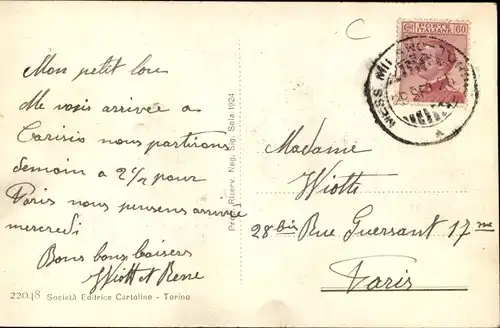 Mon petit lou
Me vosis arrivée a
Carisio nous partirons
demain a 2 1/2 pour
Paris nous pensons arrivée
mercredi
Bons bons baisers
Wiott et Rene
22048 Società Editrice Cartoline - Torino
Propr. Riserv. Neg. Sig. Sola 1924
C
POSTE ITALIANE 60
MESS MILANO
Madame
Wiott
28 bis Rue Guersant 17me
Paris